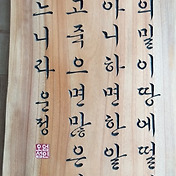 의 밀이 땅에 떨
아니하면 한 알
고 죽으면 많은
느니라 운정